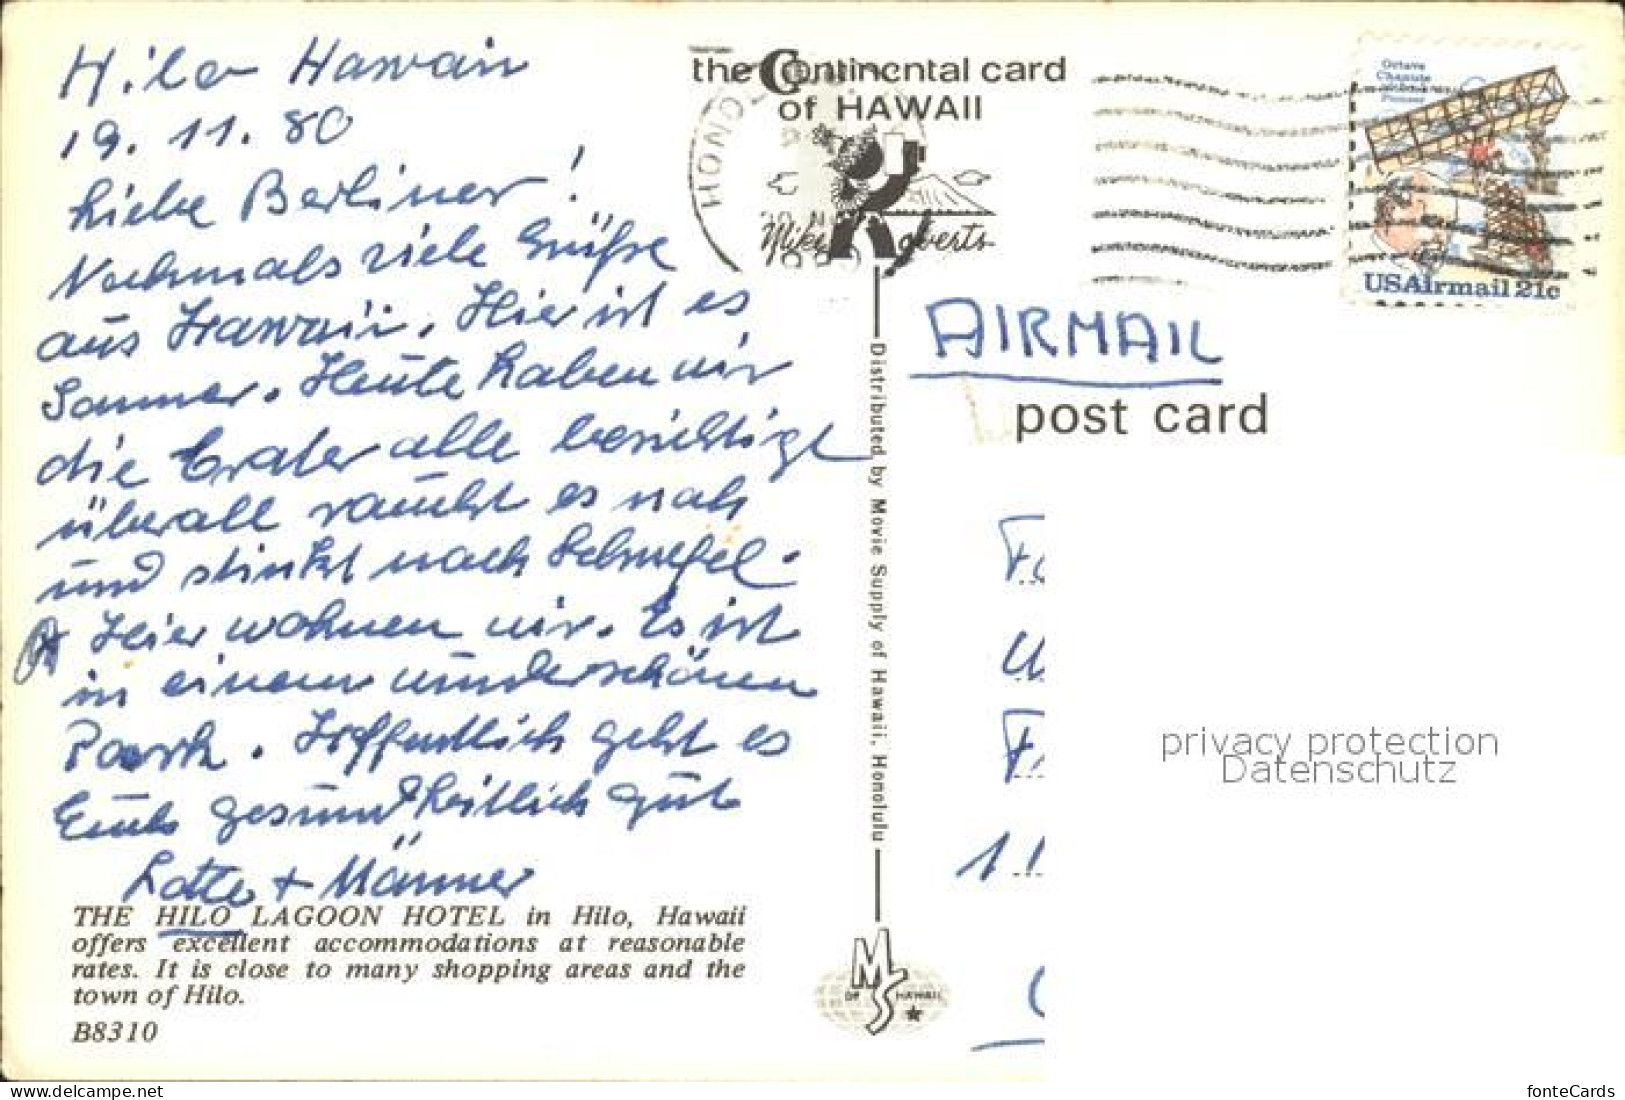 Hilo Hawaii
19.11.80
Liebe Berliner!
Nochmals viele Grüße
aus Hawaii. Hier ist es
Sommer. Heute haben wir
die Crater alle besichtigt
überall raucht es noch
und stinkt nach Schwefel.
Hier wohnen wir. Es ist
in einem wunderschönen
Park. Hoffentlich geht es
Euch gesundheitlich gut
Lotte + Männer
THE HILO LAGOON HOTEL in Hilo, Hawaii
offers excellent accommodations at reasonable
rates. It is close to many shopping areas and the
town of Hilo.
B8310
the Continental card
of HAWAII
HONOL
Mike Roberts
Distributed by Movie Supply of Hawaii, Honolulu
MS
OF HAWAII
Octave
Chanute
USAirmail 21c
AIRMAIL
post card
privacy protection
Datenschutz
https://www.delcampe.net
fonteCards